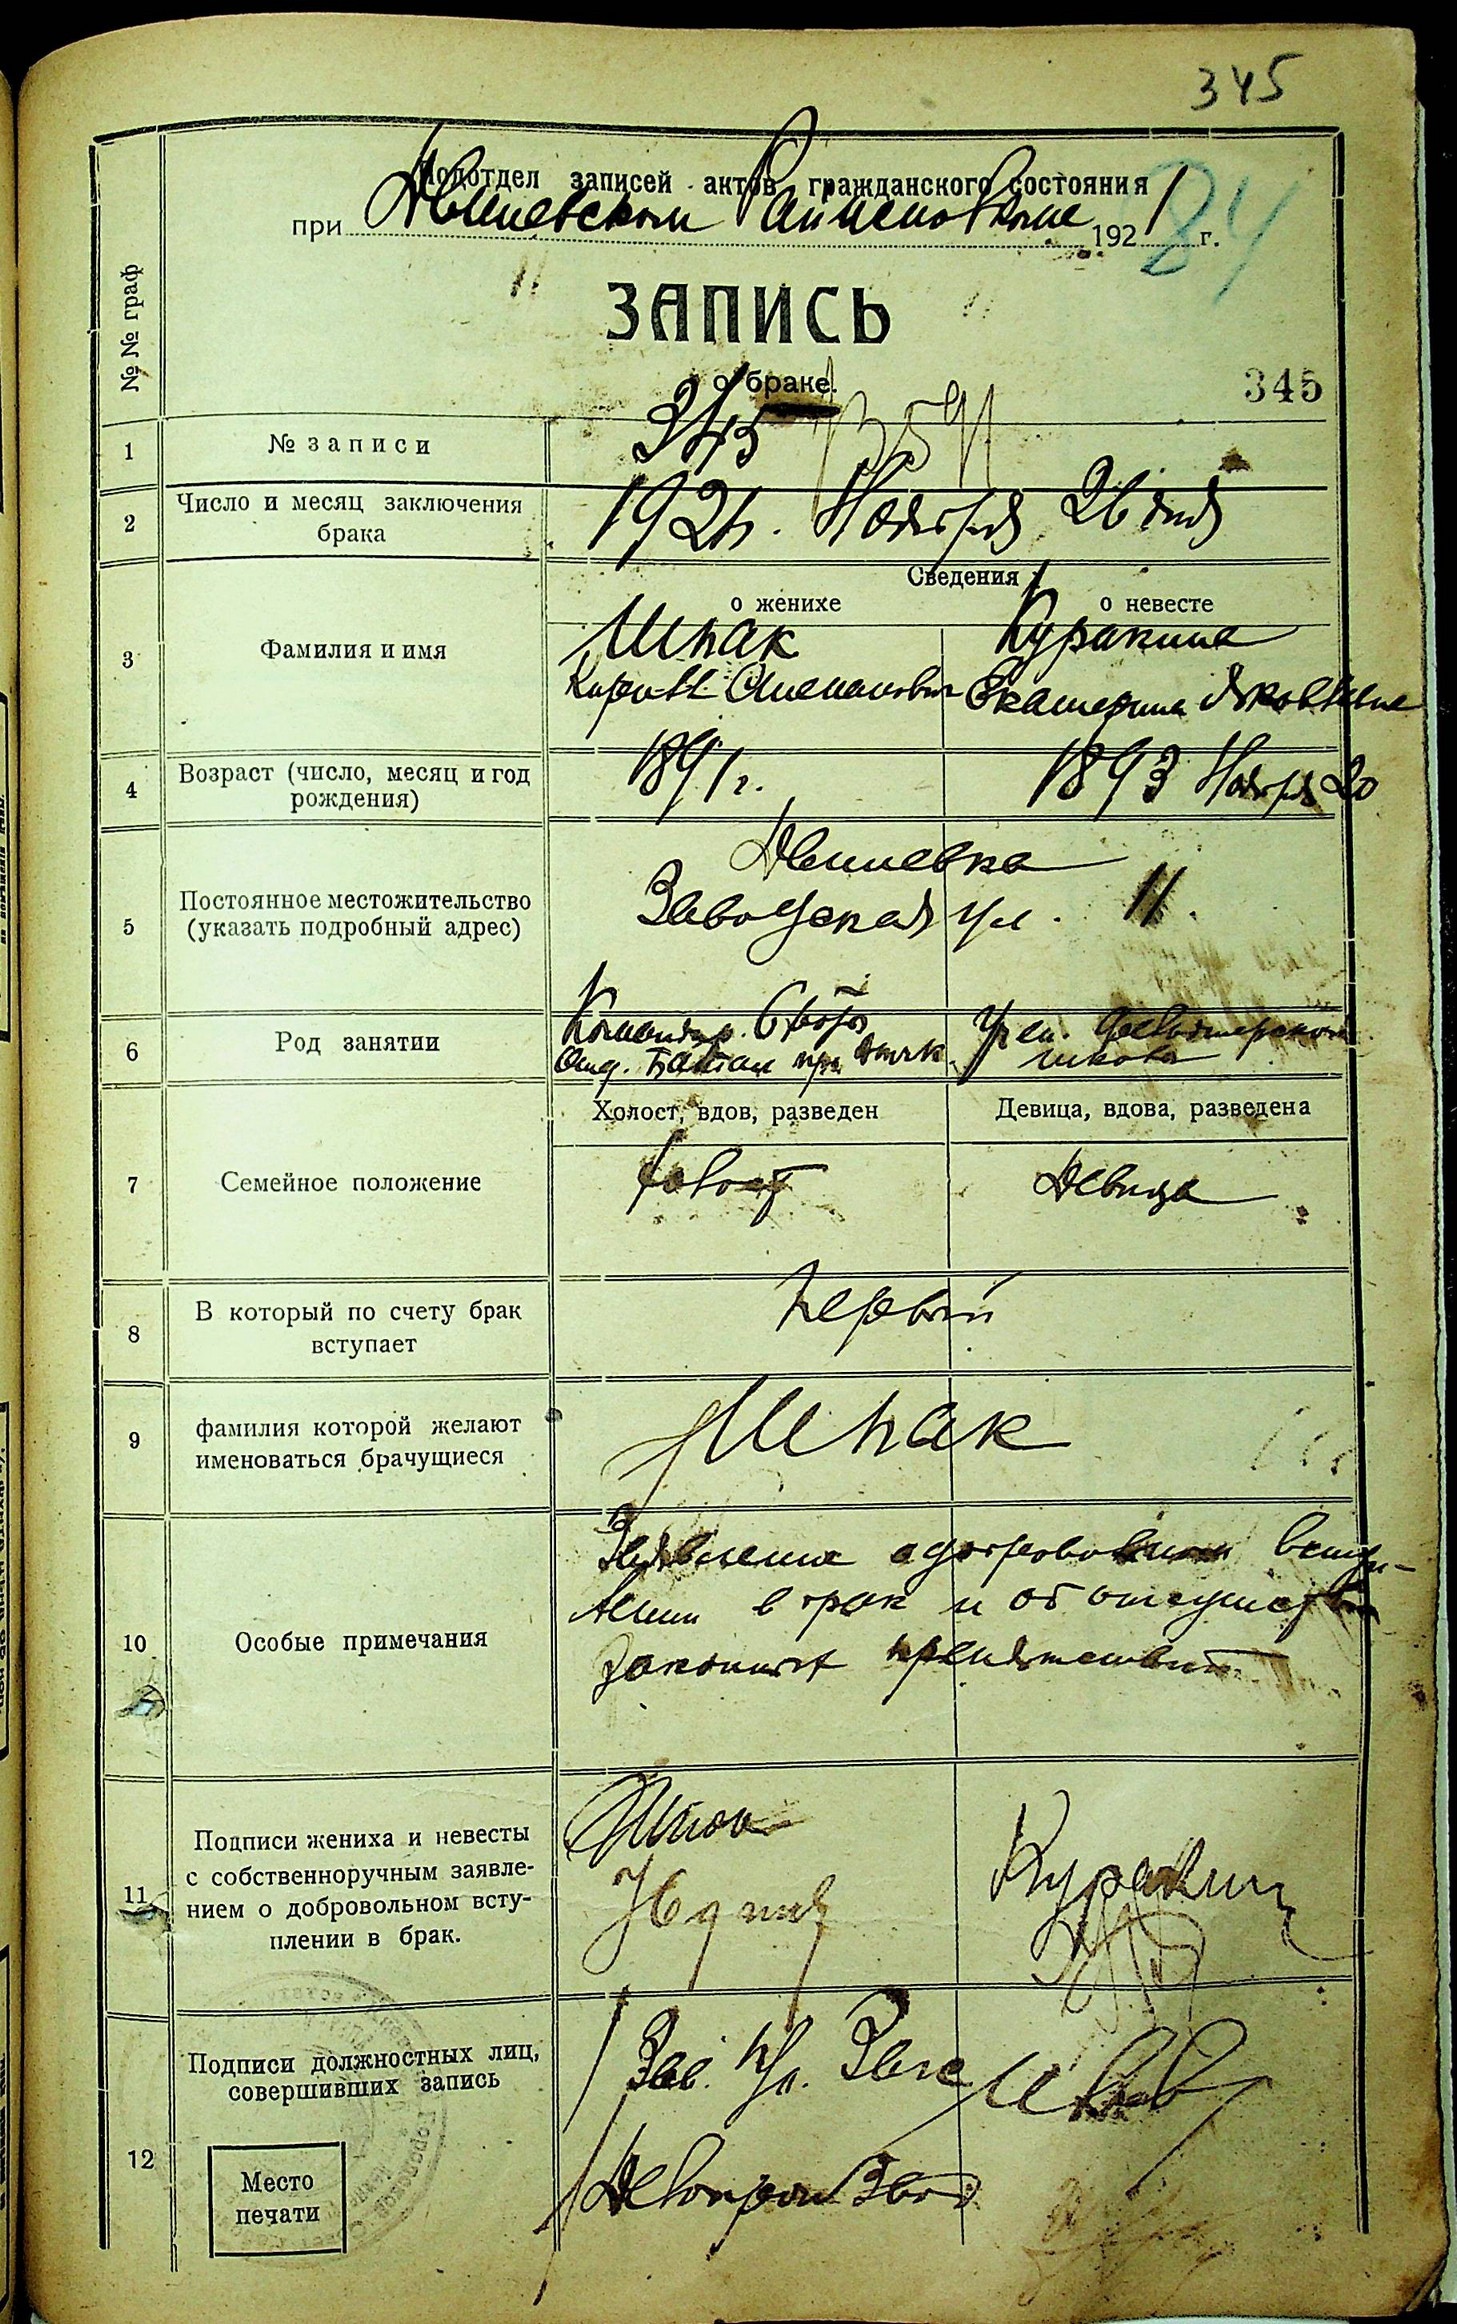 345
Подотдел записей актов гражданского состояния
при Демиевском Райисполкоме 1921 г.
84
№№ граф
ЗАПИСЬ
о браке.
345
1 № записи 345
2 Число и месяц заключения
брака
1921 г. Ноября 26 дня
Сведения
о женихе о невесте
3 Фамилия и имя
Шпак Куракина
Кирилл Степанович Екатерина Яковлевна
4 Возраст (число, месяц и год
рождения)
1891 г. 1893 Ноября 20
5 Постоянное местожительство
(указать подробный адрес)
Демиевка
Заводская ул. 11.
6 Род занятии
Командир
Отд. Батал при Учен. фельдшерской
школы
Холост, вдов, разведен Девица, вдова, разведена
7 Семейное положение
Холост Девица
8 В который по счету брак
вступает
первый
9 фамилия которой желают
именоваться брачущиеся
Шпак
10 Особые примечания
Заявление о добровольном вступ-
лении в брак и об отсутствии
законных препятствий
11 Подписи жениха и невесты
с собственноручным заявле-
нием о добровольном всту-
плении в брак.
Шпак
Куракин
12 Подписи должностных лиц,
совершивших запись
Зав. п/о. Загс
Делопроизвод
Место
печати